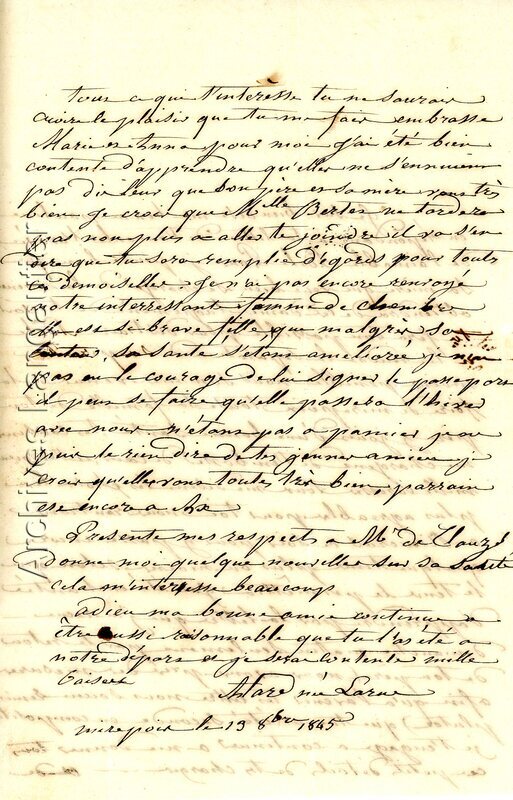 tous ce qui t'intéresse tu ne saurais
croire le plaisir que tu me fais embrasse
Marie et Anna pour moi j'ai été bien
contente d'apprendre qu'elles ne s'ennuient
pas dis leur que bon père et sa mère vont très
bien je crois que Mlle Bertes ne tardera
pas non plus a aller te joindre il va s'en
dire que tu sera remplie d'égards pour touts
ces demoiselles. Je n'ai pas encore renvoyé
notre interressante femme de chambre
est si brave fille, que malgrer sa
sa santé s'étans améliorée je n'ai
pas eu le courage de lui signer le passeport
il peus se faire qu'elle passera l'hiver
avec nous n'étans pas a pamier je ne
puis te rien dire de tes jennes amies je
crois qu'elles vons toutes très bien, parrain
est encore a Ax
Presente mes respects a Mr de Clauzel
donne moi quelque nouvelles sur sa santé
cela m'intéresse beaucoup
adieu ma bonne amie continue a
être aussi raisonnable que tu l'as été a
notre départ et je serai contente mille
baisers
née Larue
mirepoix le 13 8bre 1845
Archives Lengaritier